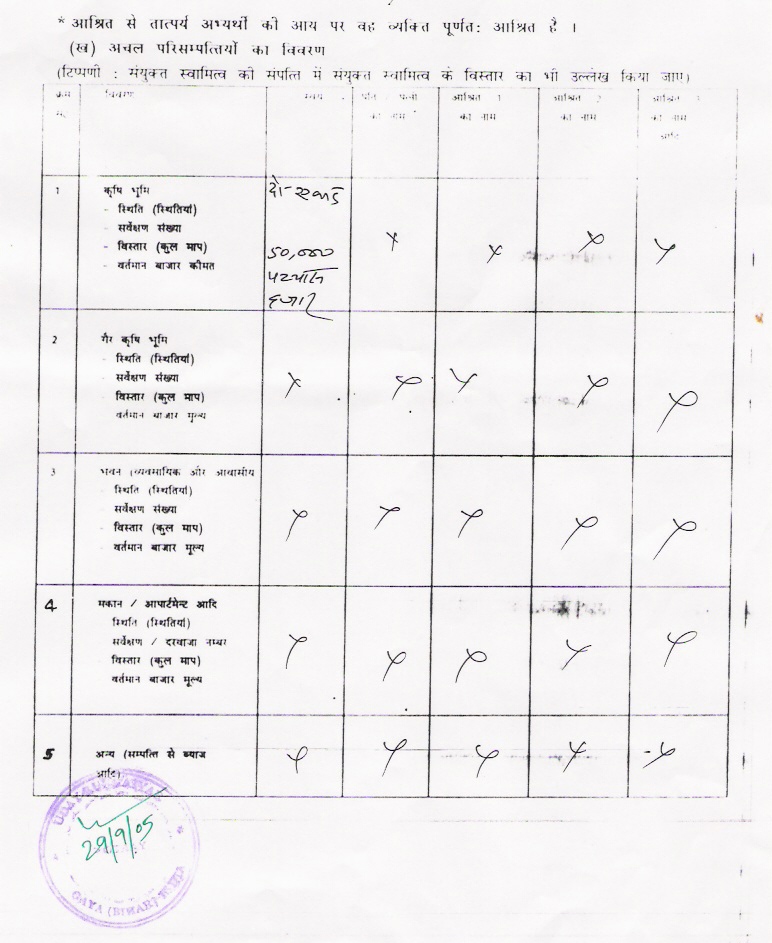 * आश्रित से तात्पर्य अभ्यर्थी की आय पर वह व्यक्ति पूर्णत: आश्रित है ।
(ख) अचल परिसम्पत्तियों का विवरण
(टिप्पणी : संयुक्त स्वामित्व की संपत्ति में संयुक्त स्वामित्व के विस्तार का भी उल्लेख किया जाए)
क्रम विवरण स्वयं पति / पत्नी आश्रित 1 आश्रित 2 आश्रित 3
सं. का नाम का नाम का नाम का नाम
आदि
1 कृषि भूमि दो-एकड़
- स्थिति (स्थितियां)
- सर्वेक्षण संख्या
- विस्तार (कुल माप) 50,000 x x x x
- वर्तमान बाजार कीमत पच्चास
हजार
2 गैर कृषि भूमि
- स्थिति (स्थितियां)
सर्वेक्षण संख्या x x x x x
विस्तार (कुल माप)
वर्तमान बाजार मूल्य
3 भवन (व्यवसायिक और आवासीय
- स्थिति (स्थितियां)
सर्वेक्षण संख्या x x x x x
- विस्तार (कुल माप)
- वर्तमान बाजार मूल्य
4 मकान / आपार्टमेन्ट आदि
स्थिति (स्थितियां)
सर्वेक्षण / दरवाजा नम्बर x x x x x
विस्तार (कुल माप)
वर्तमान बाजार मूल्य
5 अन्य (सम्पत्ति से ब्याज x x x x x
आदि)
29/9/05
GAYA (BIHAR)